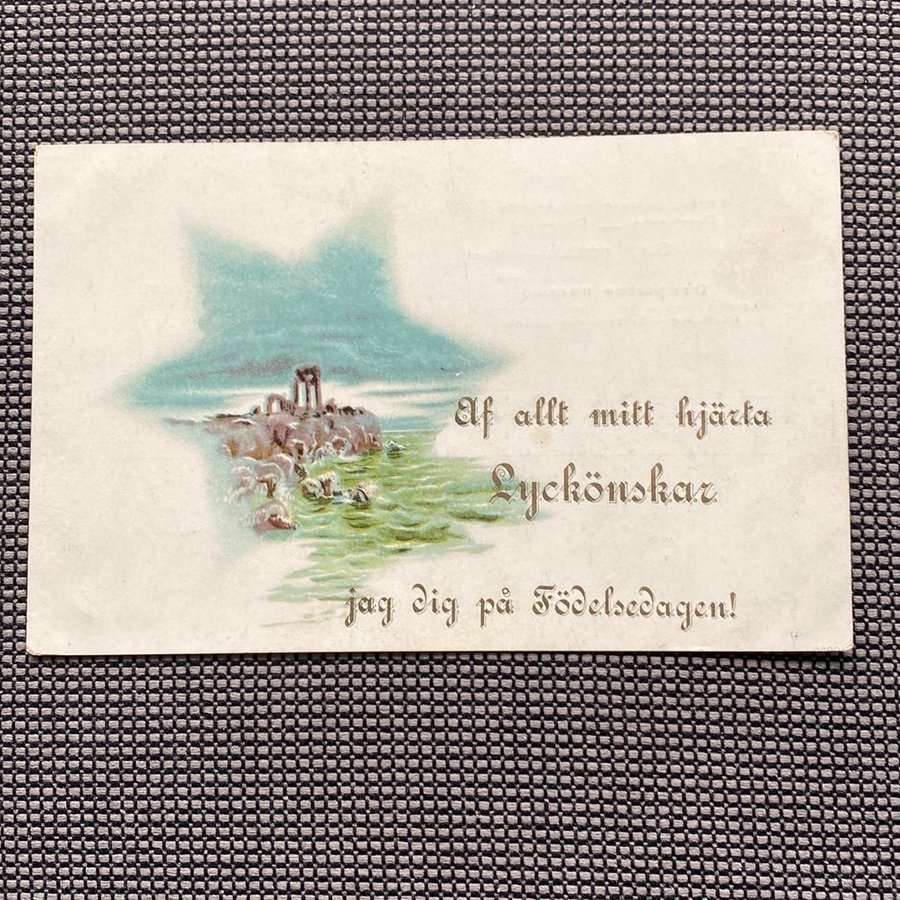 Af allt mitt hjärta
Lyckönskar
jag dig på Födelsedagen!